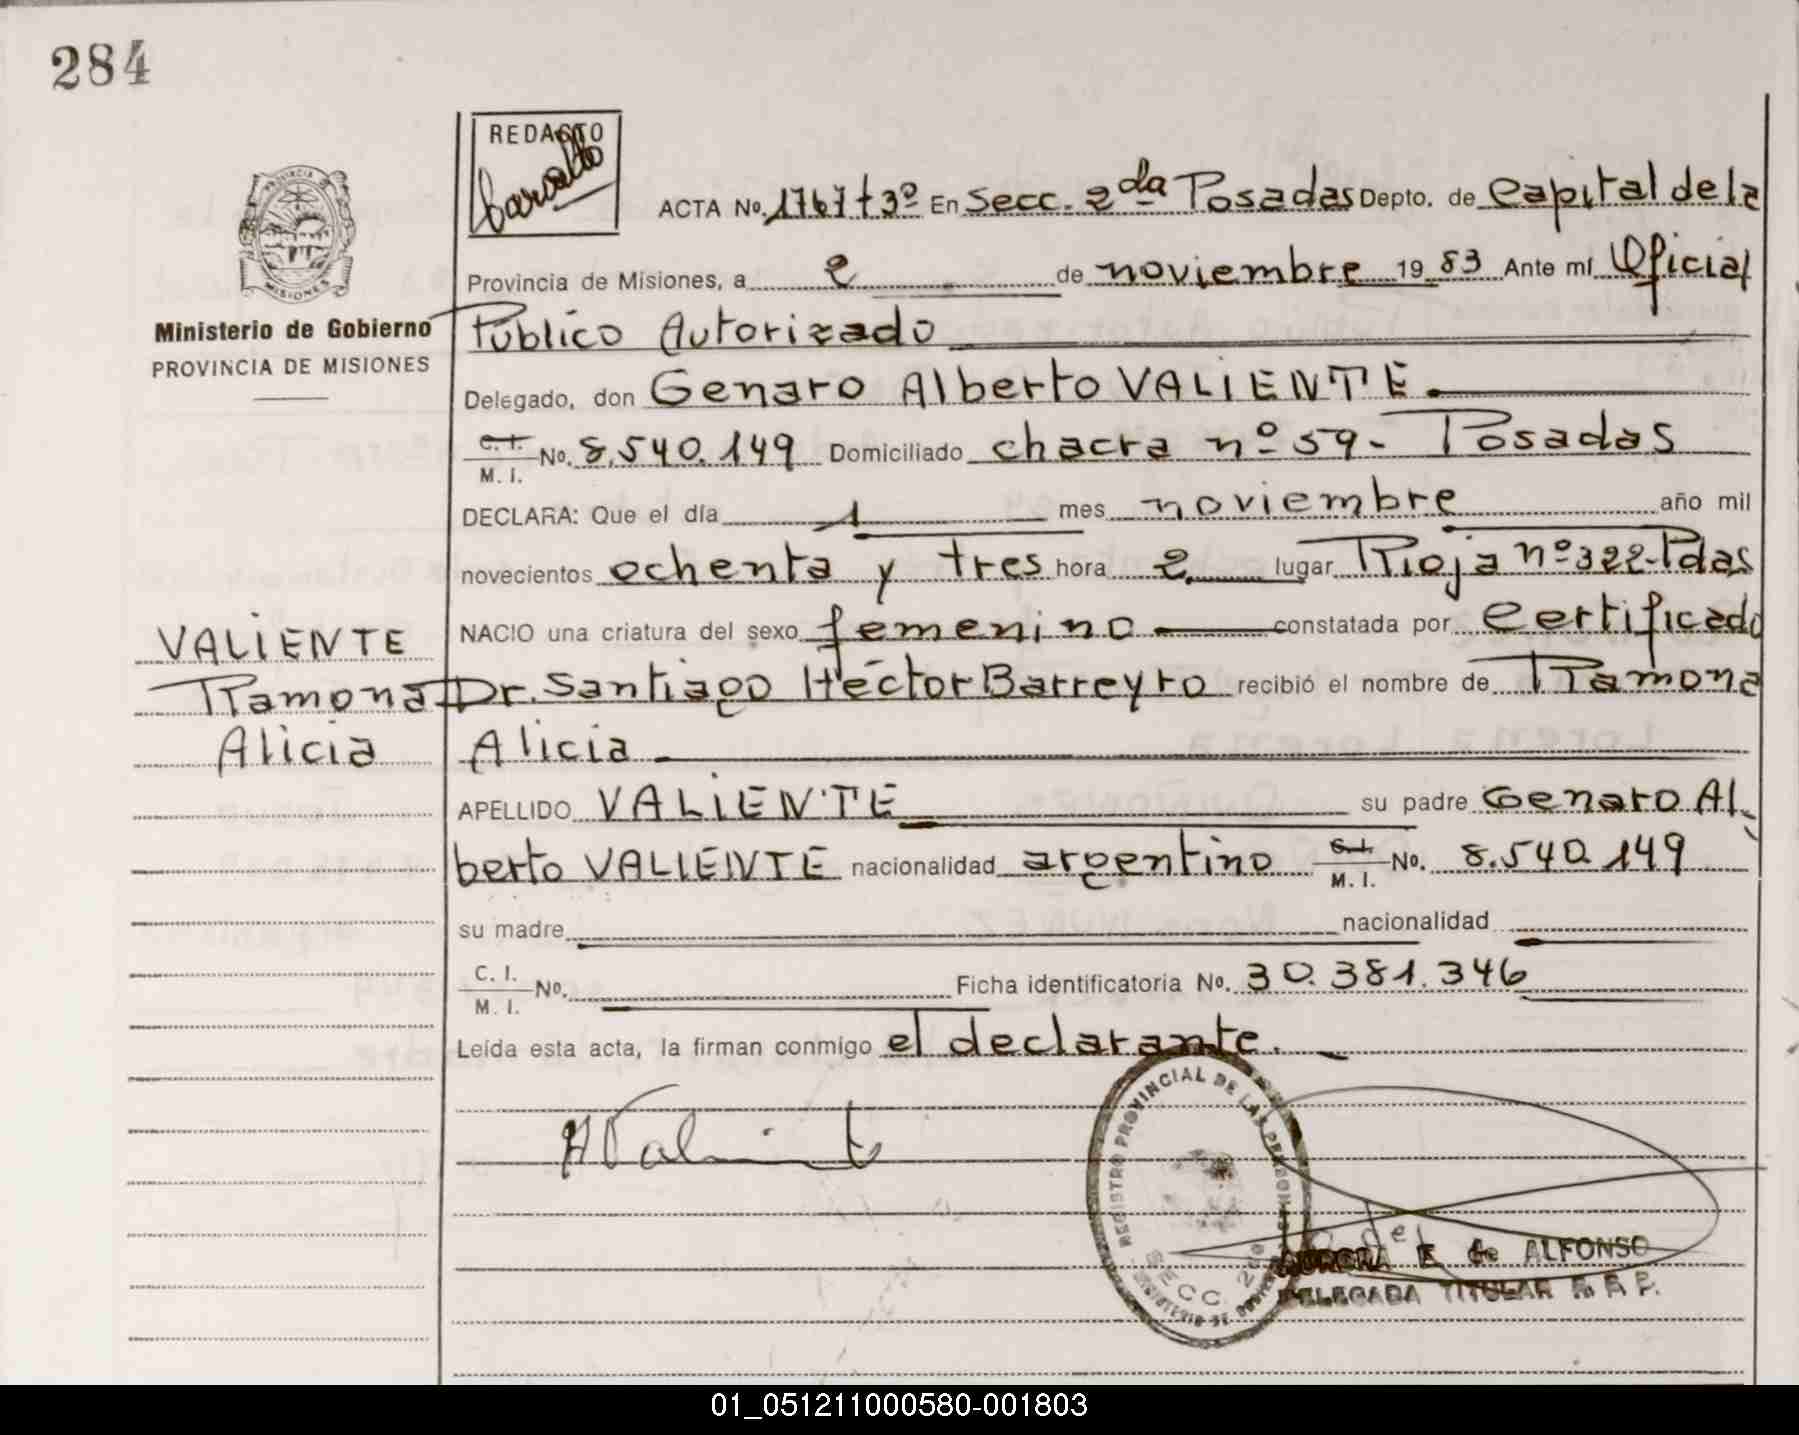 284
REDACTO
ACTA No. 1767 t 3º En Secc. 2da Posadas Depto. de Capital de la
Provincia de Misiones, a 2 de noviembre 1983 Ante mí Oficial
Ministerio de Gobierno
PROVINCIA DE MISIONES
Público Autorizado
Delegado, don Genaro Alberto VALIENTE
C. I. M. I. No. 8.540.149 Domiciliado chacra nº 59- Posadas
DECLARA: Que el día 1 mes noviembre año mil
novecientos ochenta y tres hora 2 lugar Rioja nº 322-Pdas
NACIO una criatura del sexo femenino constatada por certificado
VALIENTE
Ramona
Alicia
Dr. Santiago Héctor Barreyro recibió el nombre de Ramona
Alicia
APELLIDO VALIENTE su padre Genaro Al-
berto VALIENTE nacionalidad argentino C. I. M. I. No. 8.540.149
su madre nacionalidad
C. I. M. I. No. Ficha identificatoria No. 30.381.346
Leída esta acta, la firman conmigo el declarante.
REGISTRO PROVINCIAL DE LAS PERSONAS
SECC. 2da
AURORA E de ALFONSO
DELEGADA TITULAR R. P. P.
01_051211000580-001803